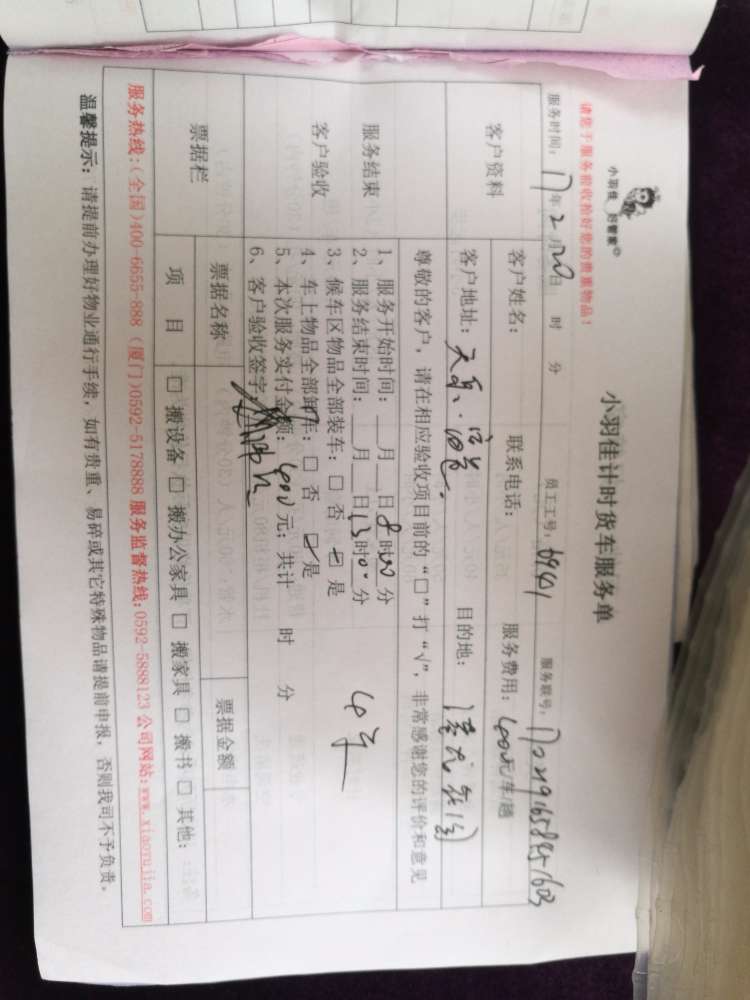 小羽佳 好管家
小羽佳计时货车服务单
请您于服务前收拾好您的贵重物品！
服务时间：17年2月20日 时 分 员工工号：6941 服务账号：
客户资料
客户姓名： 联系电话： 服务费用：400元/车/趟
客户地址： 目的地：
尊敬的客户，请在相应验收项目前的“□”打“√”，非常感谢您的评价和意见
服务结束
客户验收
1、服务开始时间：__月__日8时00分
2、服务结束时间：__月__日13时00分
3、候车区物品全部装车：□ 否 ☑ 是
4、车上物品全部卸车：□ 否 ☑ 是
5、本次服务实付金额：400元；共计 时 分
6、客户验收签字：
票据栏
票据名称
票据金额
项 目 □ 搬设备 □ 搬办公家具 □ 搬家具 □ 搬书 □ 其他：
服务热线：(全国)400-6655-888 (厦门)0592-5178888 服务监督热线：0592-5888123 公司网站：www.xiaoyujia.com
温馨提示：请提前办理好物业通行手续，如有贵重、易碎或其它特殊物品请提前申报，否则我司不予负责。